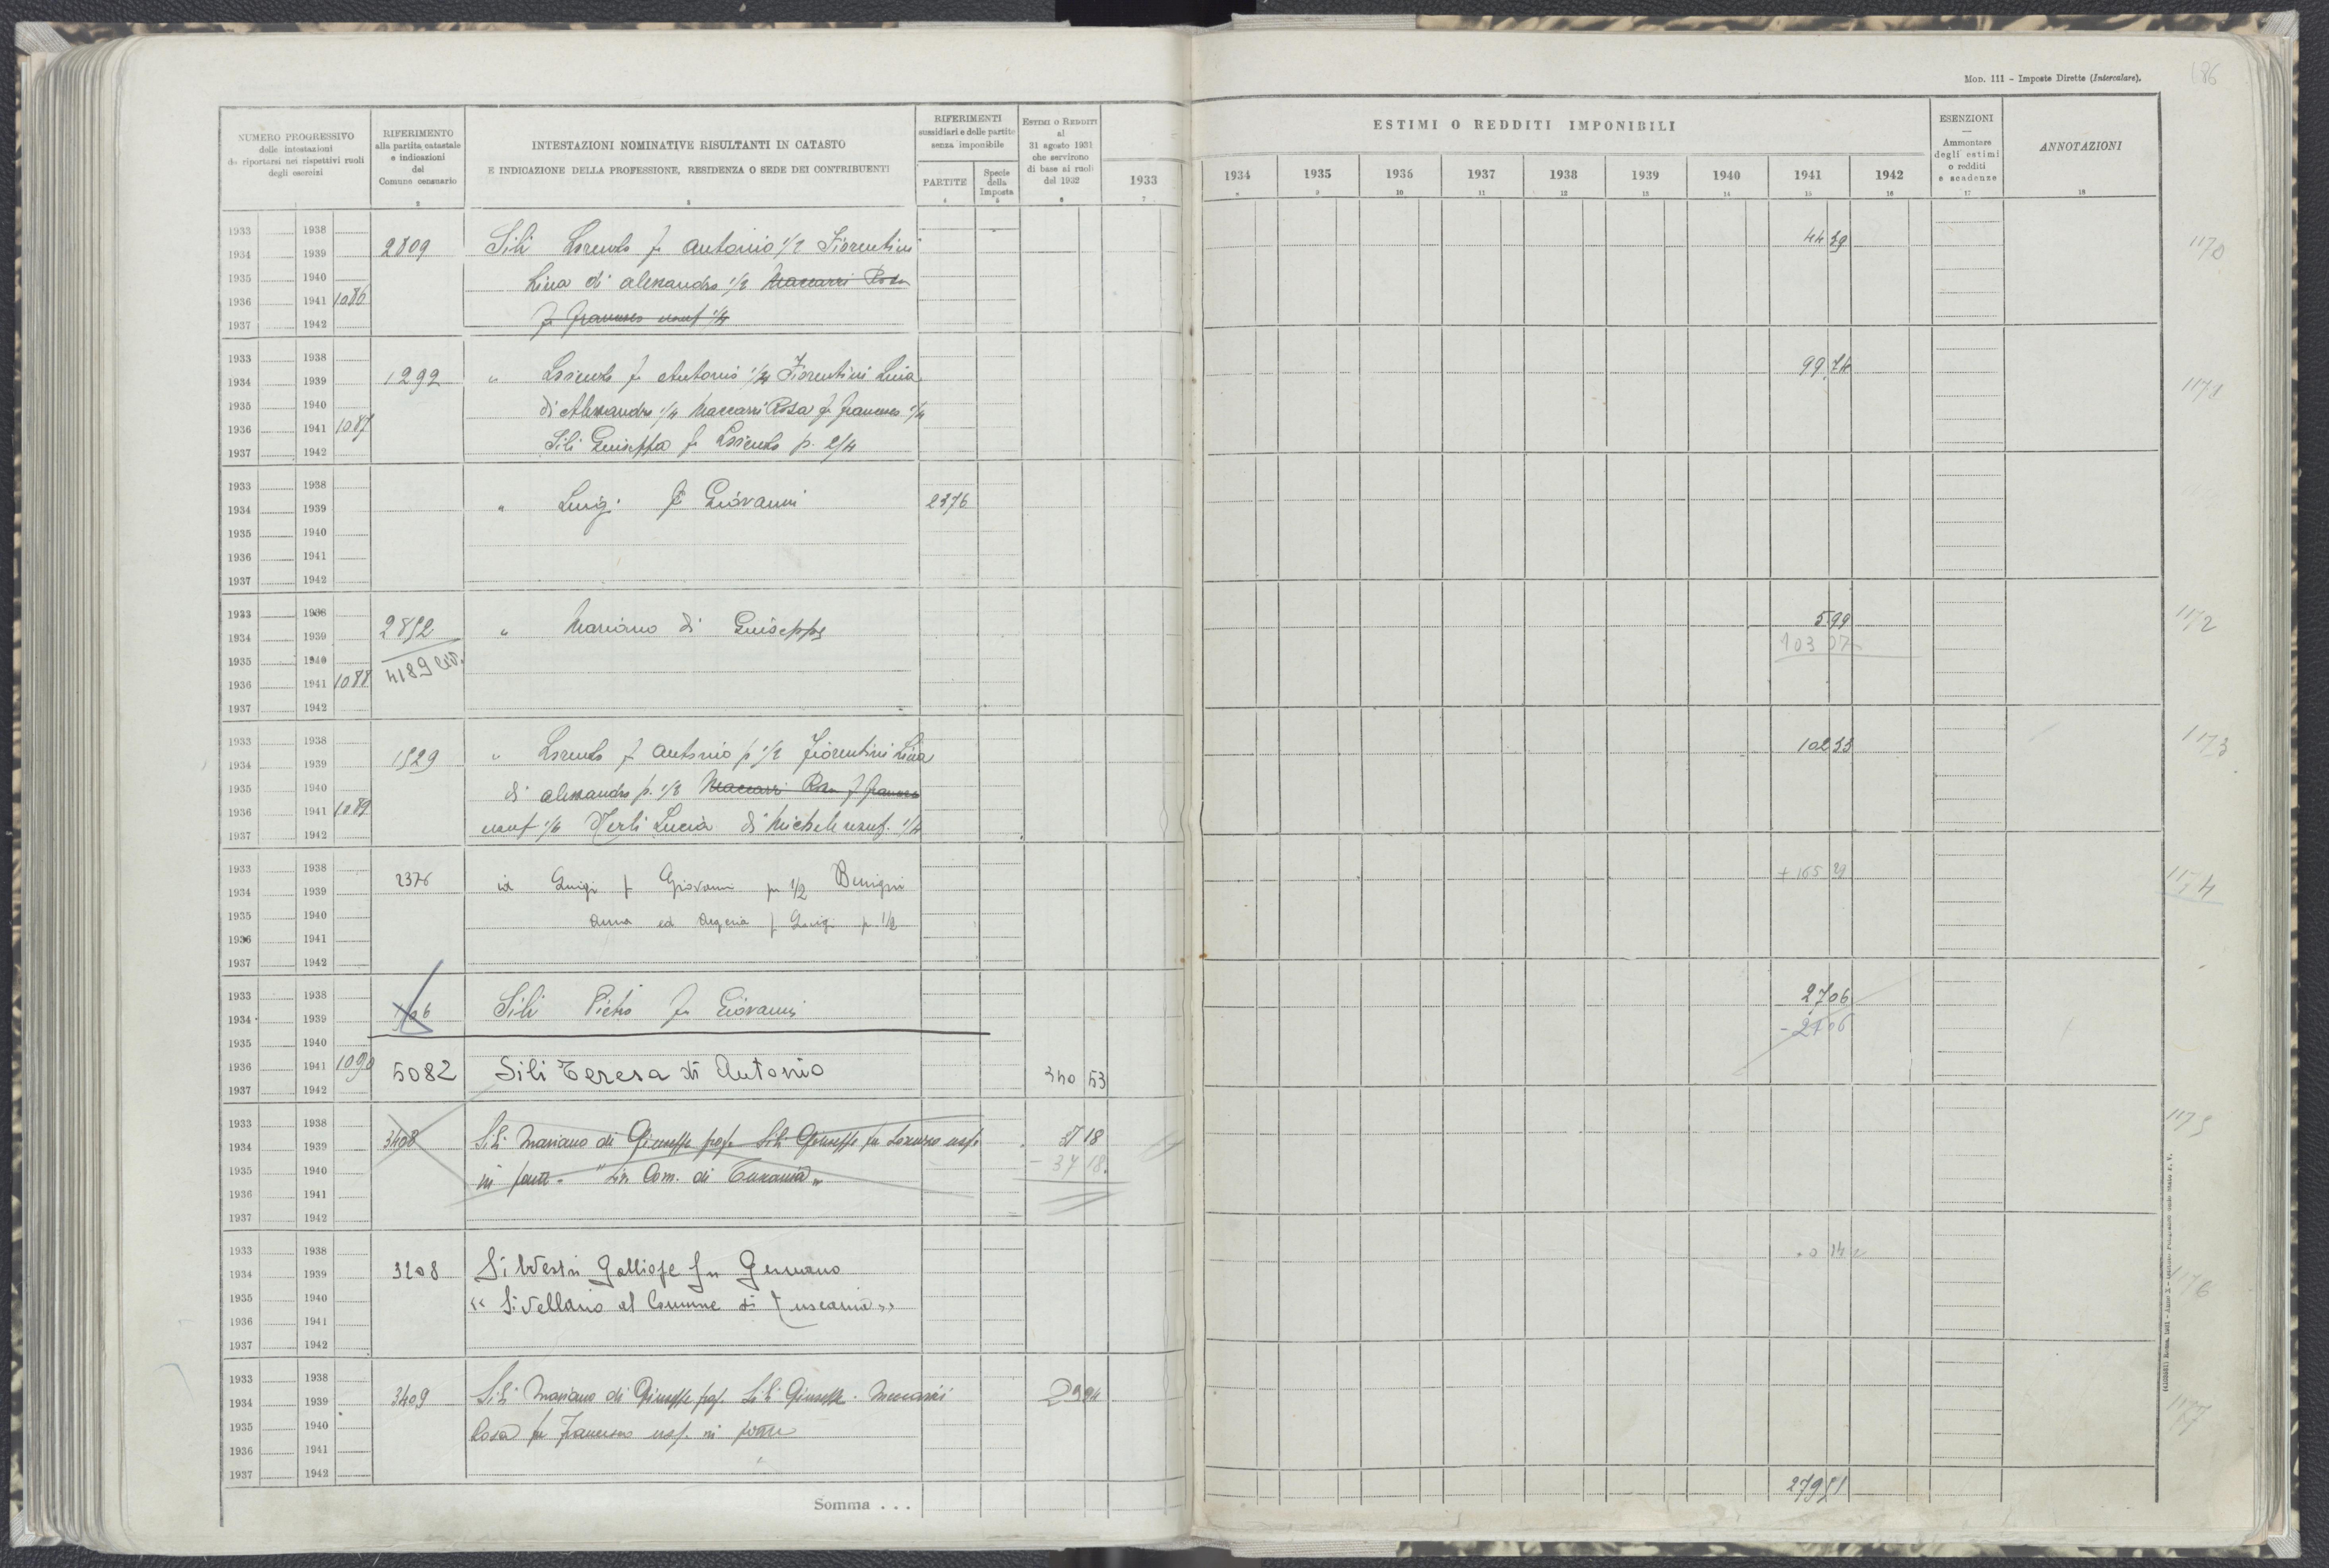 Mod. 111 - Imposte Dirette (Intercalare).
186
NUMERO PROGRESSIVO
delle intestazioni
da riportarsi nei rispettivi ruoli
degli esercizi
RIFERIMENTO
alla partita catastale
e indicazioni
del
Comune censuario
2
INTESTAZIONI NOMINATIVE RISULTANTI IN CATASTO
E INDICAZIONE DELLA PROFESSIONE, RESIDENZA O SEDE DEI CONTRIBUENTI
3
RIFERIMENTI
sussidiari e delle partite
senza imponibile
PARTITE
4
Specie
della
Imposta
5
ESTIMI O REDDITI
al
31 agosto 1931
che servirono
di base ai ruoli
del 1932
6
ESTIMI O REDDITI IMPONIBILI
1933
7
1934
8
1935
9
1936
10
1937
11
1938
12
1939
13
1940
14
1941
15
1942
16
ESENZIONI
Ammontare
degli estimi
o redditi
e scadenze
17
ANNOTAZIONI
18
1933 1938
1934 1939
1935 1940
1936 1941 1086
1937 1942
2809
Sili Lorenzo fu Antonio 1/2 Fiorentini
Lina di Alessandro 1/2 Maccarri Rosa
fu Francesco usuf 1/4
44 39
1170
1933 1938
1934 1939
1935 1940
1936 1941 1087
1937 1942
1292
" Lorenzo fu Antonio 1/4 Fiorentini Lina
di Alessandro 1/4 Maccarri Rosa fu Francesco 1/4
Sili Giuseppa fu Lorenzo p. 2/4
99 74
1171
1933 1938
1934 1939
1935 1940
1936 1941
1937 1942
" Luigi fu Giovanni
2376
1933 1938
1934 1939
1935 1940
1936 1941 1088
1937 1942
2852
4189
" Mariano di Giuseppe
5 99
103 07
1172
1933 1938
1934 1939
1935 1940
1936 1941 1089
1937 1942
1529
" Lorenzo fu Antonio p 1/2 Fiorentini Lina
di Alessandro p. 1/2 Maccarri Rosa fu Francesco
usuf 1/4 Verli Lucia di Michele usuf. 1/4
102 33
1173
1933 1938
1934 1939
1935 1940
1936 1941
1937 1942
2376
id Luigi fu Giovanni per 1/2 Benigni
Anna ed Argenia fu Luigi p. 1/2
+ 165 29
1174
1933 1938
1934 1939
1935 1940
1936 1941 1090
1937 1942
Sili Pietro fu Giovanni
27 06
- 27 06
5082
Sili Teresa di Antonio
340 53
1933 1938
1934 1939
1935 1940
1936 1941
1937 1942
3408
Sili Mariano di Giuseppe prop. Sili Giuseppe fu Lorenzo usf.
in parte - " Liv. Com. di Tuscania "
37 18
- 37 18
1175
1933 1938
1934 1939
1935 1940
1936 1941
1937 1942
3208
Silvestri Galliope fu Germano
« Livellario al Comune di Tuscania »
1176
1933 1938
1934 1939
1935 1940
1936 1941
1937 1942
3409
Sili Mariano di Giuseppe prop. Sili Giuseppe - Maccarri
Rosa fu Francesco usf. in parte
29 94
1177
Somma . . .
279 51